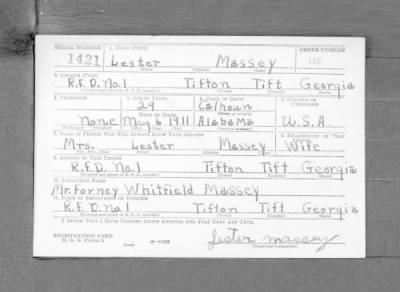 SERIAL NUMBER 1. NAME (Print) ORDER NUMBER
1421 Lester Massey
(First) (Middle) (Last)
2. ADDRESS (Print)
R.F.D. No. 1 Tifton Tift Georgia
3. TELEPHONE 4. AGE IN YEARS 5. PLACE OF BIRTH 6. COUNTRY OF CITIZENSHIP
29 Calhoun
DATE OF BIRTH
None May 6 1911 Alabama U.S.A.
7. NAME OF PERSON WHO WILL ALWAYS KNOW YOUR ADDRESS 8. RELATIONSHIP OF THAT PERSON
Mrs. Lester Massey Wife
9. ADDRESS OF THAT PERSON
R.F.D. No. 1 Tifton Tift Georgia
10. EMPLOYER'S NAME
Mr. Forney Whitfield Massey
11. PLACE OF EMPLOYMENT OR BUSINESS
R.F.D. No. 1 Tifton Tift Georgia
I AFFIRM THAT I HAVE VERIFIED ABOVE ANSWERS AND THAT THEY ARE TRUE.
REGISTRATION CARD
D. S. S. FORM 1
Lester Massey